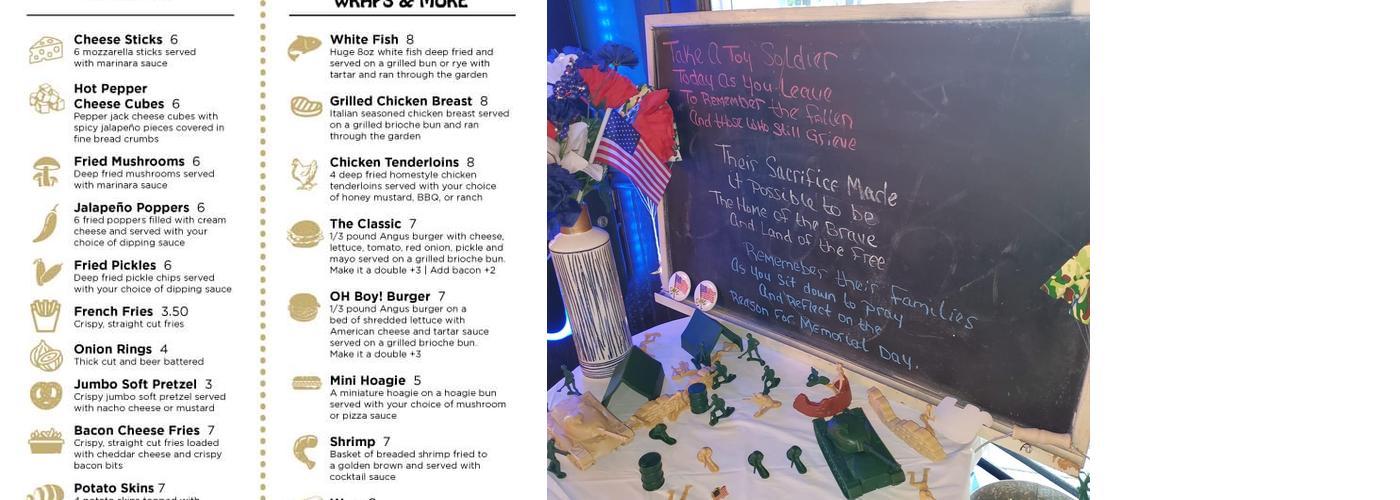 Cheese Sticks 6
6 mozzarella sticks served
with marinara sauce
Hot Pepper
Cheese Cubes 6
Pepper jack cheese cubes with
spicy jalapeño pieces covered in
fine bread crumbs
Fried Mushrooms 6
Deep fried mushrooms served
with marinara sauce
Jalapeño Poppers 6
6 fried poppers filled with cream
cheese and served with your
choice of dipping sauce
Fried Pickles 6
Deep fried pickle chips served
with your choice of dipping sauce
French Fries 3.50
Crispy, straight cut fries
Onion Rings 4
Thick cut and beer battered
Jumbo Soft Pretzel 3
Crispy jumbo soft pretzel served
with nacho cheese or mustard
Bacon Cheese Fries 7
Crispy, straight cut fries loaded
with cheddar cheese and crispy
bacon bits
Potato Skins 7
WRAPS & MORE
White Fish 8
Huge 8oz white fish deep fried and
served on a grilled bun or rye with
tartar and ran through the garden
Grilled Chicken Breast 8
Italian seasoned chicken breast served
on a grilled brioche bun and ran
through the garden
Chicken Tenderloins 8
4 deep fried homestyle chicken
tenderloins served with your choice
of honey mustard, BBQ, or ranch
The Classic 7
1/3 pound Angus burger with cheese,
lettuce, tomato, red onion, pickle and
mayo served on a grilled brioche bun.
Make it a double +3 | Add bacon +2
OH Boy! Burger 7
1/3 pound Angus burger on a
bed of shredded lettuce with
American cheese and tartar sauce
served on a grilled brioche bun.
Make it a double +3
Mini Hoagie 5
A miniature hoagie on a hoagie bun
served with your choice of mushroom
or pizza sauce
Shrimp 7
Basket of breaded shrimp fried to
a golden brown and served with
cocktail sauce
Take A Toy Soldier
Today As You Leave
To Remember the fallen
And those who still Grieve
Their Sacrifice Made
it Possible to be
The Home of the Brave
And Land of the Free
Rememeber their Families
As you sit down to pray
And Reflect on the
Reason For Memorial Day.